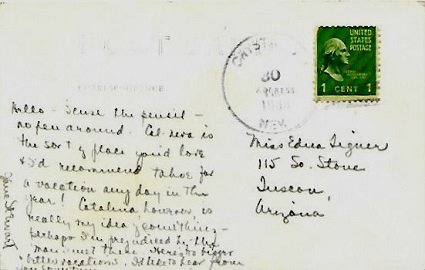 POST
UNITED
STATES
POSTAGE
1 CENT 1
CRYST
30
1944
NEV.
Hello - 'scuse the pencil -
no pen around. Cal-neva is
the sort of place you'd love
& I'd recommend Tahoe for
a vacation any day in the
year! Catalina however is
really my idea of something -
perhaps I'm prejudiced by the
man met there. Here's to bigger
better vacations. I'd like to hear from
you sometime.
Jane Stewart
Miss Edna Signer
115 So. Stone
Tuscon,
Arizona